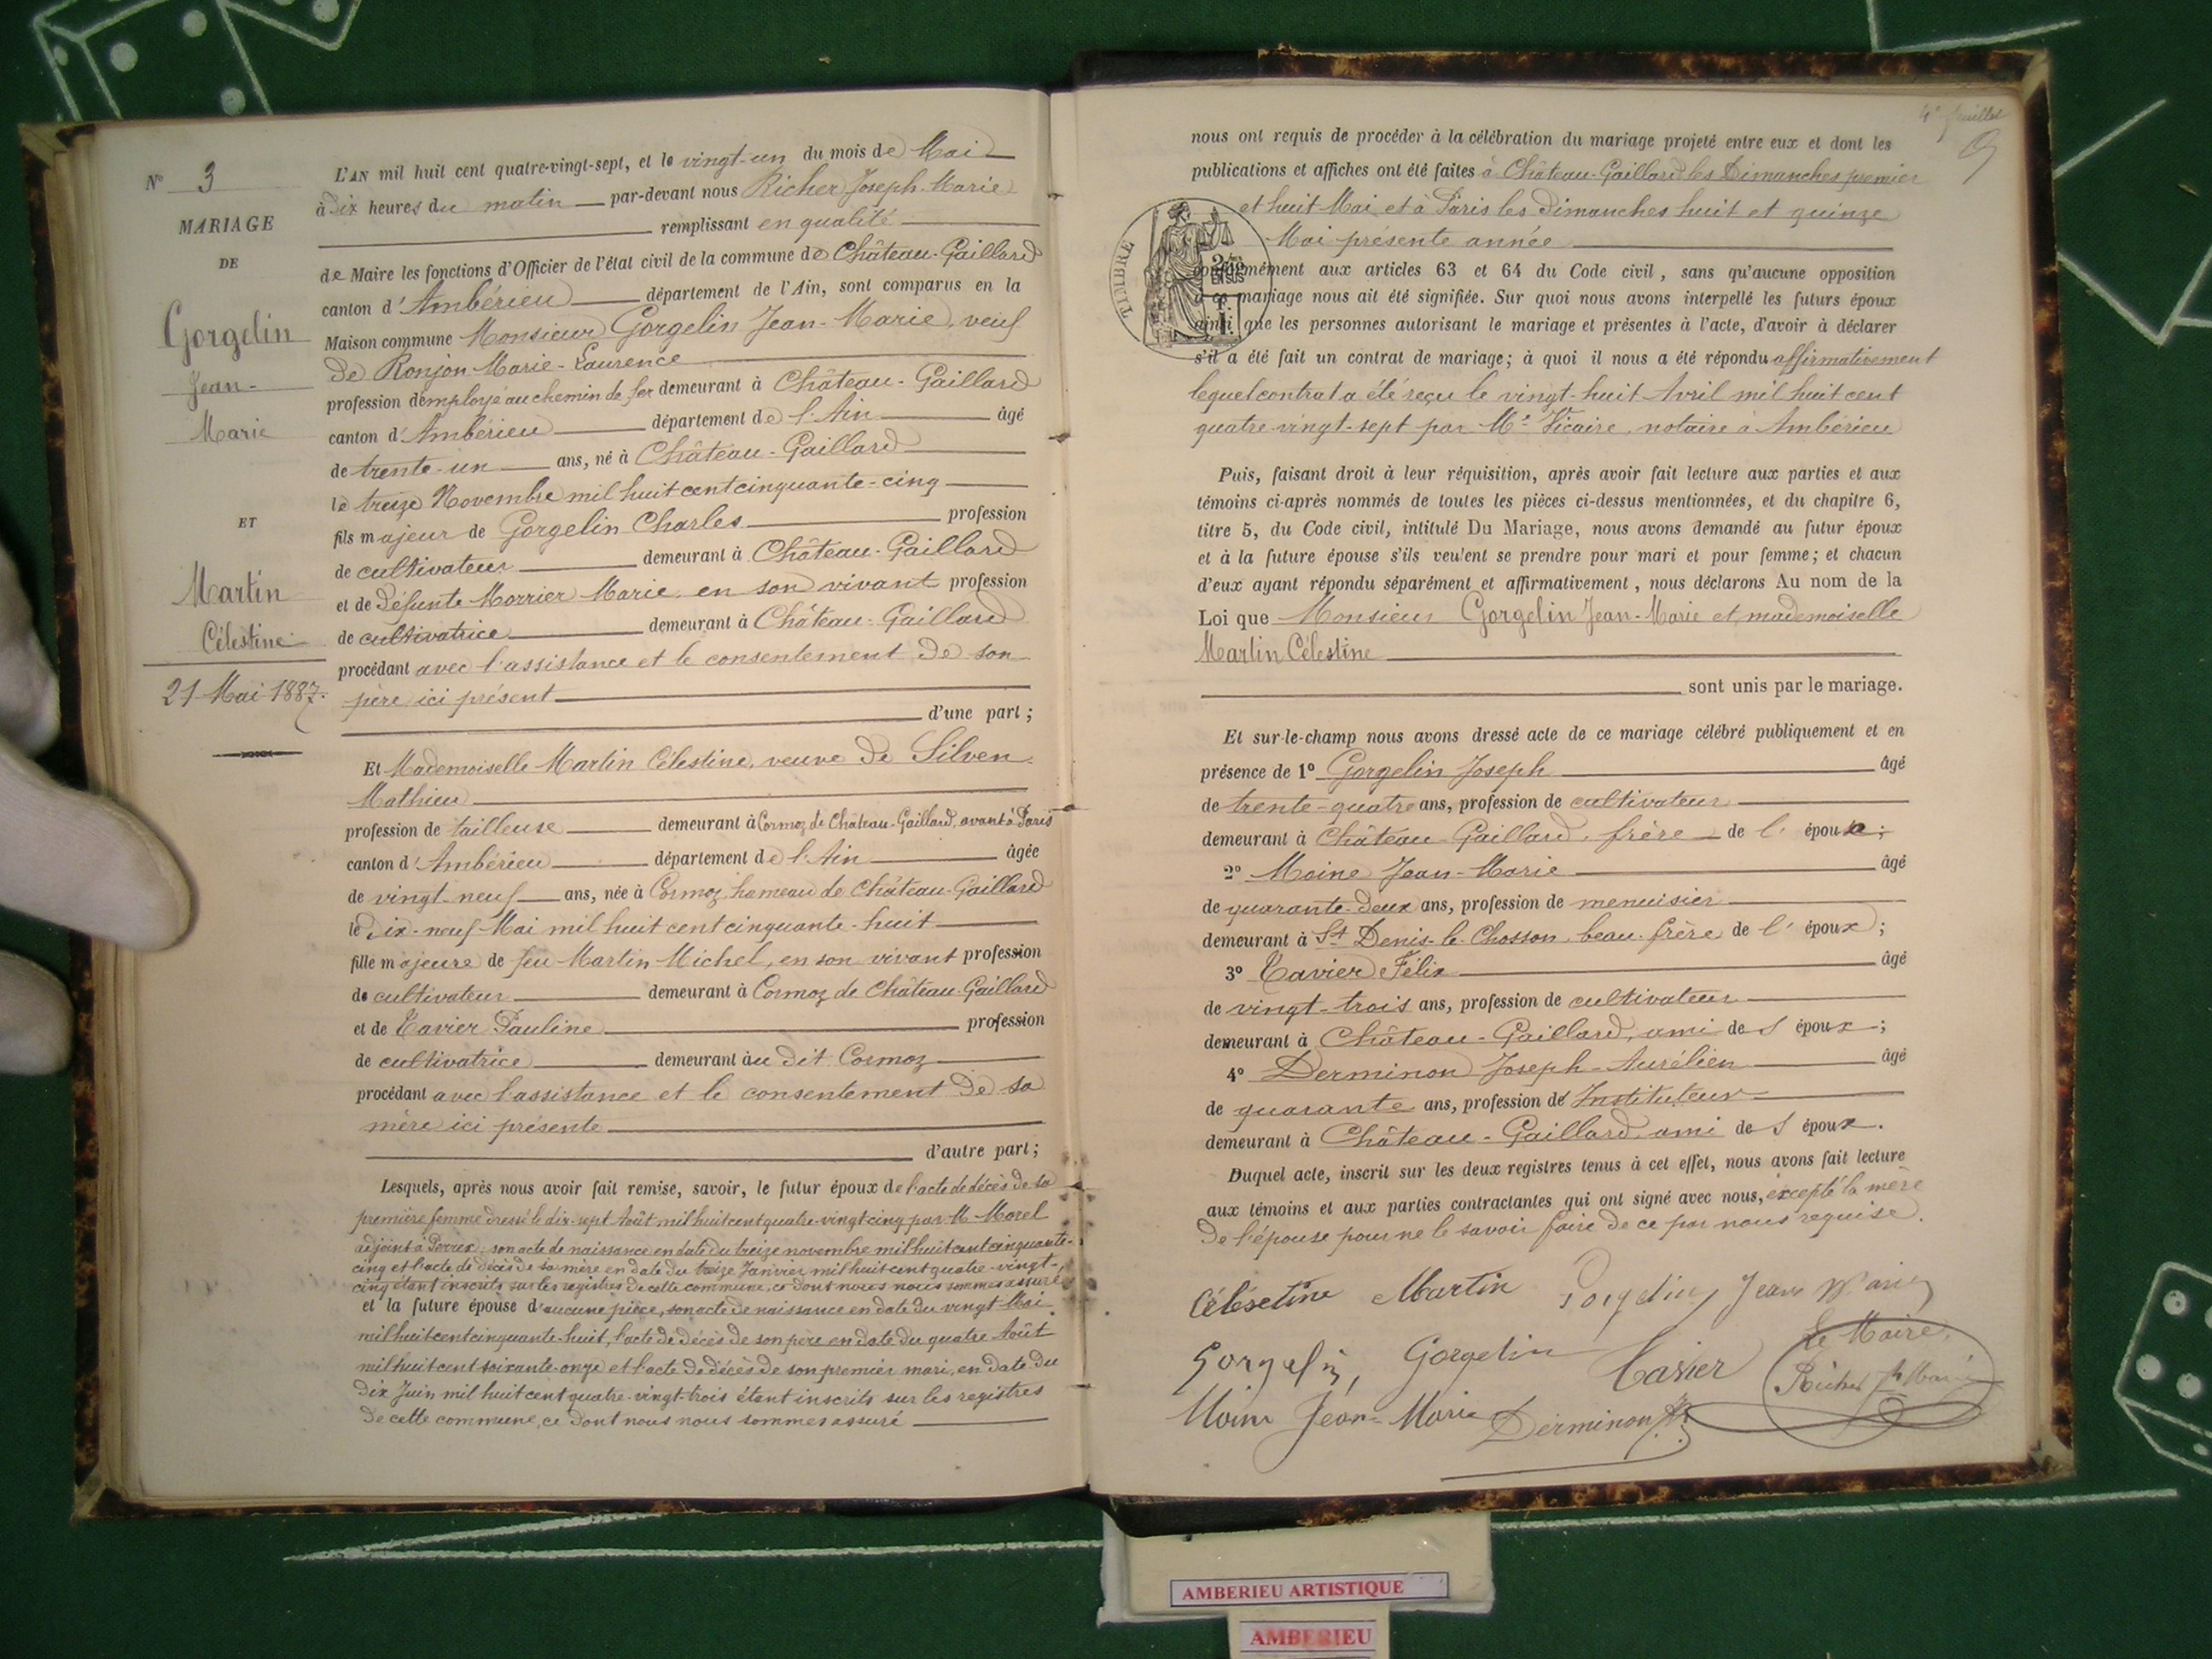 N° 3
MARIAGE
DE
Gorgelin
Jean-
Marie
ET
Martin
Célestine
21 Mai 1887.
L'AN mil huit cent quatre-vingt-sept, et le vingt-un du mois de Mai
à dix heures du matin par-devant nous Richer Joseph-Marie
remplissant en qualité
de Maire les fonctions d'Officier de l'état civil de la commune de Château-Gaillard
canton d'Ambérieu département de l'Ain, sont comparus en la
Maison commune Monsieur Gorgelin Jean-Marie, veuf
de Ronjon Marie-Laurence
profession d'employé au chemin de fer demeurant à Château-Gaillard
canton d'Ambérieu département de l'Ain âgé
de trente-un ans, né à Château-Gaillard
le treize Novembre mil huit cent cinquante-cinq
fils majeur de Gorgelin Charles profession
de cultivateur demeurant à Château-Gaillard
et de défunte Morrier Marie, en son vivant profession
de cultivatrice demeurant à Château-Gaillard
procédant avec l'assistance et le consentement de son
père ici présent
d'une part ;
Et Mademoiselle Martin Célestine, veuve de Silven
Mathieu
profession de tailleuse demeurant à Cormoz de Château-Gaillard, avant à Paris
canton d'Ambérieu département de l'Ain âgée
de vingt-neuf ans, née à Cormoz hameau de Château-Gaillard
le dix-neuf Mai mil huit cent cinquante-huit
fille majeure de feu Martin Michel, en son vivant profession
de cultivateur demeurant à Cormoz de Château-Gaillard
et de Tavier Pauline profession
de cultivatrice demeurant àu dit Cormoz
procédant avec l'assistance et le consentement de sa
mère ici présente
d'autre part ;
Lesquels, après nous avoir fait remise, savoir, le futur époux de l'acte de décès de sa
première femme dressé le dix-sept Août mil huit cent quatre-vingt cinq par M. Morel
adjoint à Perrex ; son acte de naissance en date du treize novembre mil huit cent cinquante-
cinq et l'acte de décès de sa mère en date du treize Janvier mil huit cent quatre-vingt-
cinq étant inscrits sur les registres de cette commune, ce dont nous nous sommes assuré
et la future épouse d'aucune pièce, son acte de naissance en date du vingt Mai
mil huit cent cinquante-huit, l'acte de décès de son père en date du quatre Août
mil huit cent soixante-onze et l'acte de décès de son premier mari, en date du
dix Juin mil huit cent quatre-vingt-trois étant inscrits sur les registres
de cette commune, ce dont nous nous sommes assuré
4e feuillet
nous ont requis de procéder à la célébration du mariage projeté entre eux et dont les
publications et affiches ont été faites à Château-Gaillard les Dimanches premier
et huit Mai et à Paris les dimanches huit et quinze
Mai présente année
TIMBRE
EN SUS
conformément aux articles 63 et 64 du Code civil, sans qu'aucune opposition
à ce mariage nous ait été signifiée. Sur quoi nous avons interpellé les futurs époux
ainsi que les personnes autorisant le mariage et présentes à l'acte, d'avoir à déclarer
s'il a été fait un contrat de mariage ; à quoi il nous a été répondu affirmativement
lequel contrat a été reçu le vingt-huit Avril mil huit cent
quatre-vingt-sept par Me Vicaire, notaire à Ambérieu
Puis, faisant droit à leur réquisition, après avoir fait lecture aux parties et aux
témoins ci-après nommés de toutes les pièces ci-dessus mentionnées, et du chapitre 6,
titre 5, du Code civil, intitulé Du Mariage, nous avons demandé au futur époux
et à la future épouse s'ils veulent se prendre pour mari et pour femme ; et chacun
d'eux ayant répondu séparément et affirmativement, nous déclarons Au nom de la
Loi que Monsieur Gorgelin Jean-Marie et mademoiselle
Martin Célestine
sont unis par le mariage.
Et sur-le-champ nous avons dressé acte de ce mariage célébré publiquement et en
présence de 1° Gorgelin Joseph âgé
de trente-quatre ans, profession de cultivateur
demeurant à Château-Gaillard, frère de l'époux ;
2° Moine Jean-Marie âgé
de quarante-deux ans, profession de menuisier
demeurant à St Denis-le-Chosson, beau-frère de l'époux ;
3° Tavier Félix âgé
de vingt-trois ans, profession de cultivateur
demeurant à Château-Gaillard, ami des époux ;
4° Derminon Joseph-Aurélien âgé
de quarante ans, profession d'Instituteur
demeurant à Château-Gaillard, ami des époux.
Duquel acte, inscrit sur les deux registres tenus à cet effet, nous avons fait lecture
aux témoins et aux parties contractantes qui ont signé avec nous, excepté la mère
de l'épouse pour ne le savoir faire de ce par nous requise.
Célésetine Martin Gorgelin Jean Marie
Gorgelin, Gorgelin Tavier Le Maire,
Richer Jh Marie
Moine Jean-Marie Derminon
AMBERIEU ARTISTIQUE
AMBERIEU